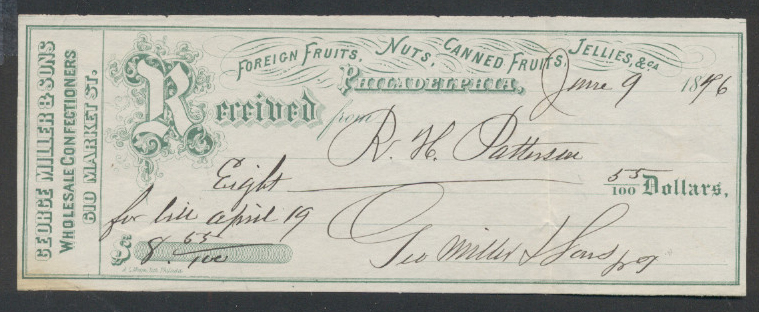 GEORGE MILLER & SONS
WHOLESALE CONFECTIONERS
610 MARKET ST.
FOREIGN FRUITS, NUTS, CANNED FRUITS, JELLIES, &CA
PHILADELPHIA, June 9 1876
Received from R. H. Patterson
Eight 55/100 Dollars,
for bill April 19
$ 8. 55/100
Geo Miller & Sons